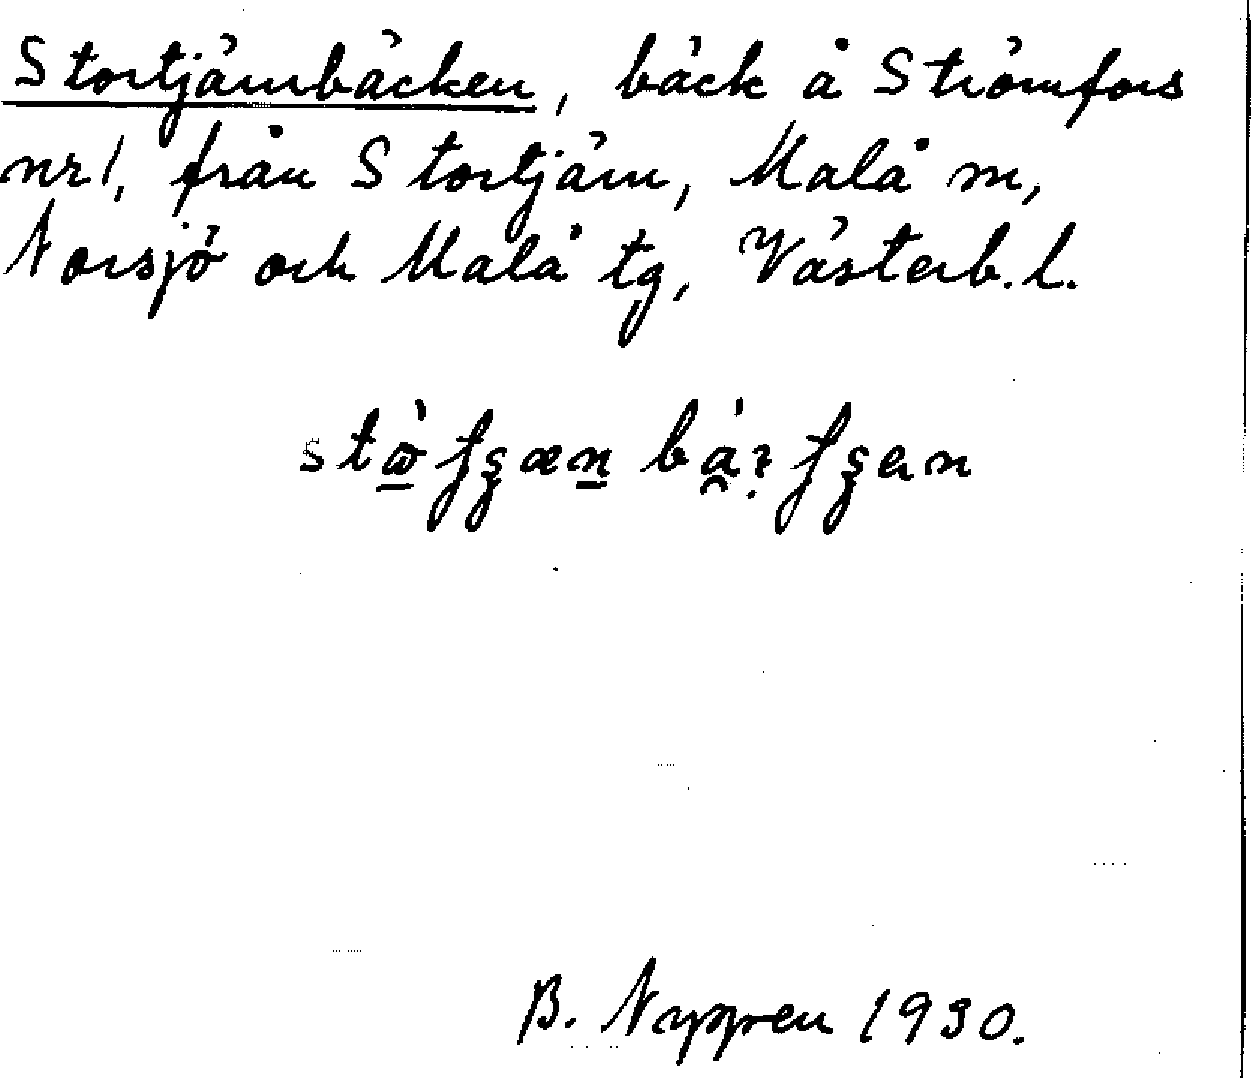 Stortjärnbäcken, bäck å Strömfors
nr 1, från Stortjärn, Malå sn,
Norsjö och Malå tg, Västerb. l.
B. Nygren 1930.